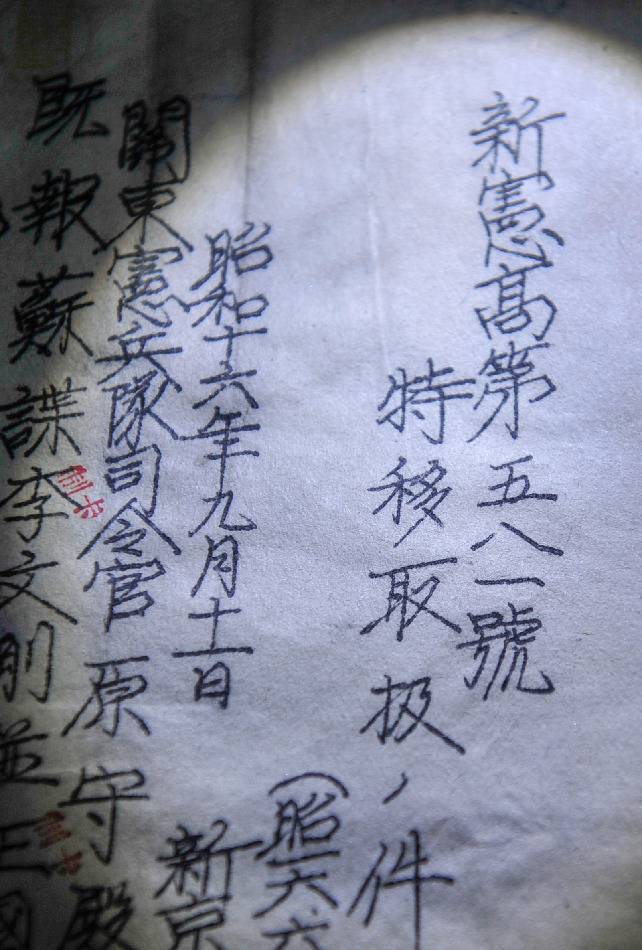 新憲高第五八一號
特移取扱ノ件
(昭一六、六
昭和十六年九月十一日
新京
關東憲兵隊司令官 原 守 殿
既報蘇諜李文剛並王國